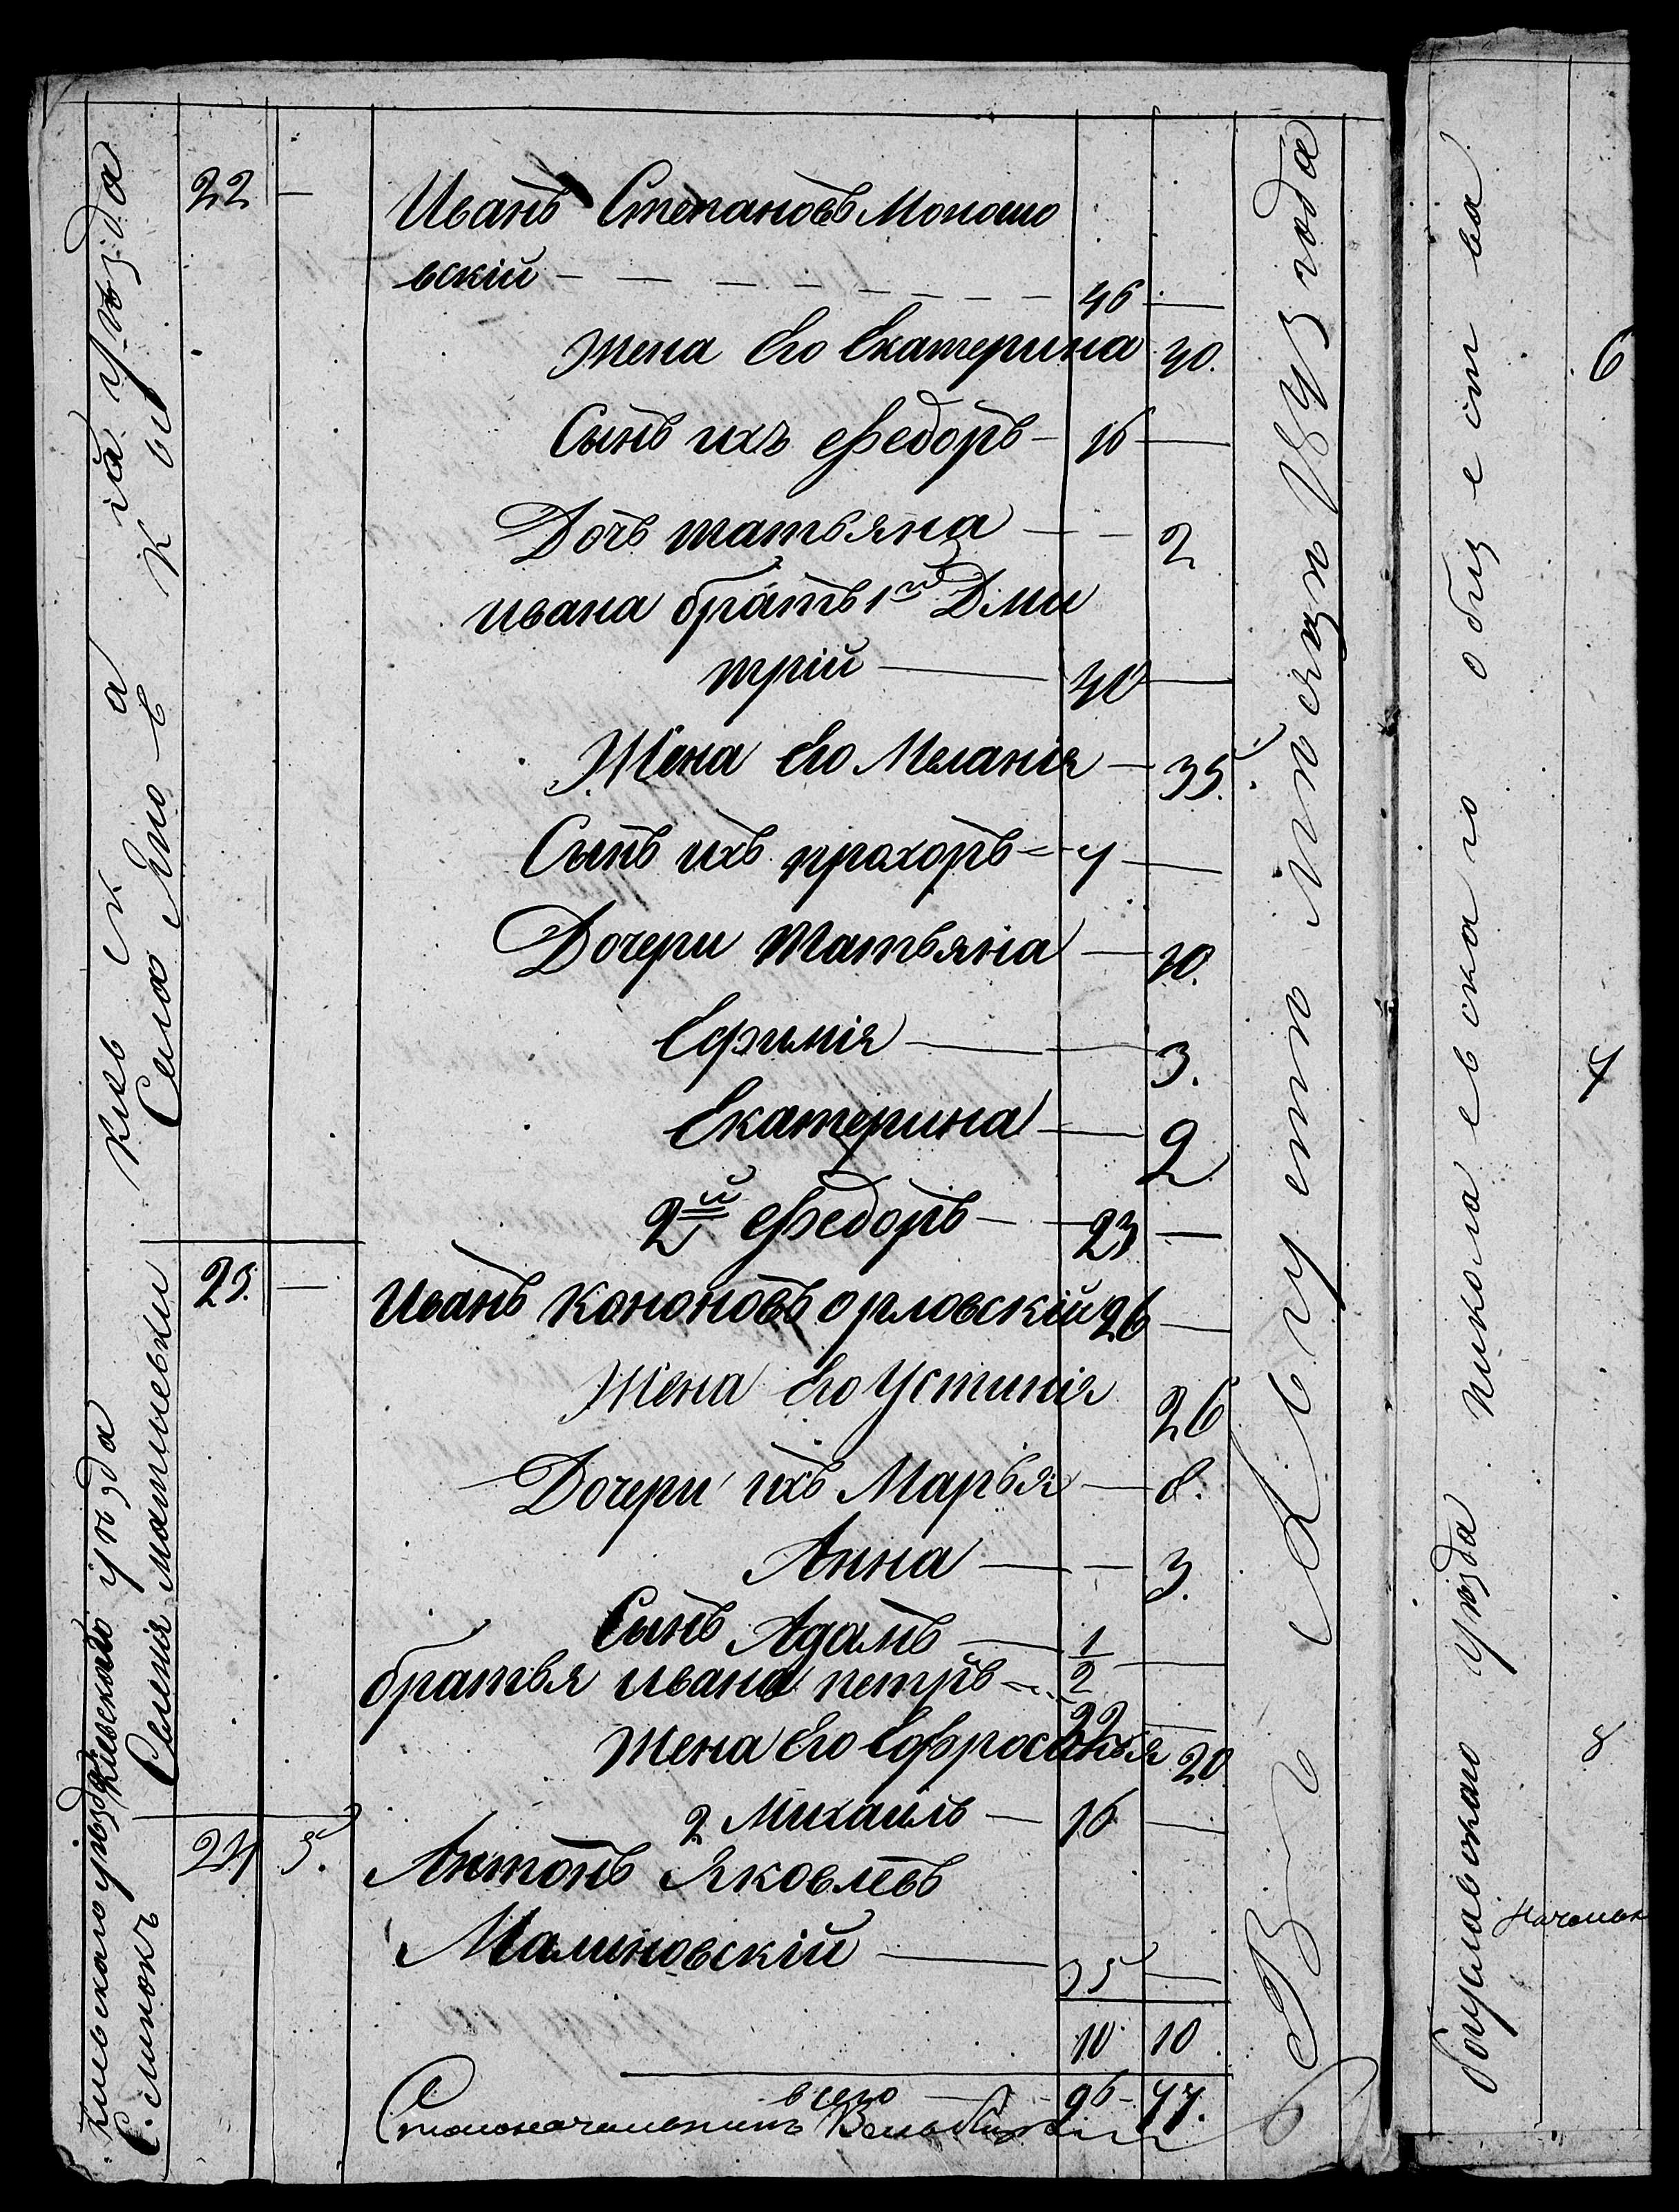 22 — Иванъ Степановъ Мопошо
вскій — — — — — — — 46 —
Жена Его Екатерина 40.
Сынъ ихъ Федоръ — 16 —
Дочь татьяна — — 2
ивана братъ 1й Дми
трій — 40 —
Жена Его Меланія — 35.
Сынъ ихъ прохоръ — 4 —
Дочери Татьяна — 10.
Ефимія — 3.
Екатерина — 2
2й Федоръ — 23 —
23. — Иванъ Кононовъ орловскій 26 —
Жена Его Устинія 26
Дочери ихъ Марья — 8.
Анна — — 3.
Сынъ Адамъ — 1/2 —
братья ивана петръ — 22 —
Жена Его Ефросинья 20
2 Михаилъ — 16 —
24 5. Антонъ Яковлевъ
Малиновскій — 35 —
10 10.
всего — 96 — 77.
Столоначальникъ
уѣзда
Село
Кіевскаго уѣзда
Селенія
Кіевскаго уѣзда
С.
В Августѣ Мѣсяцѣ 1843 года
уѣзда николаевскаго общества
6
4
8
Началь